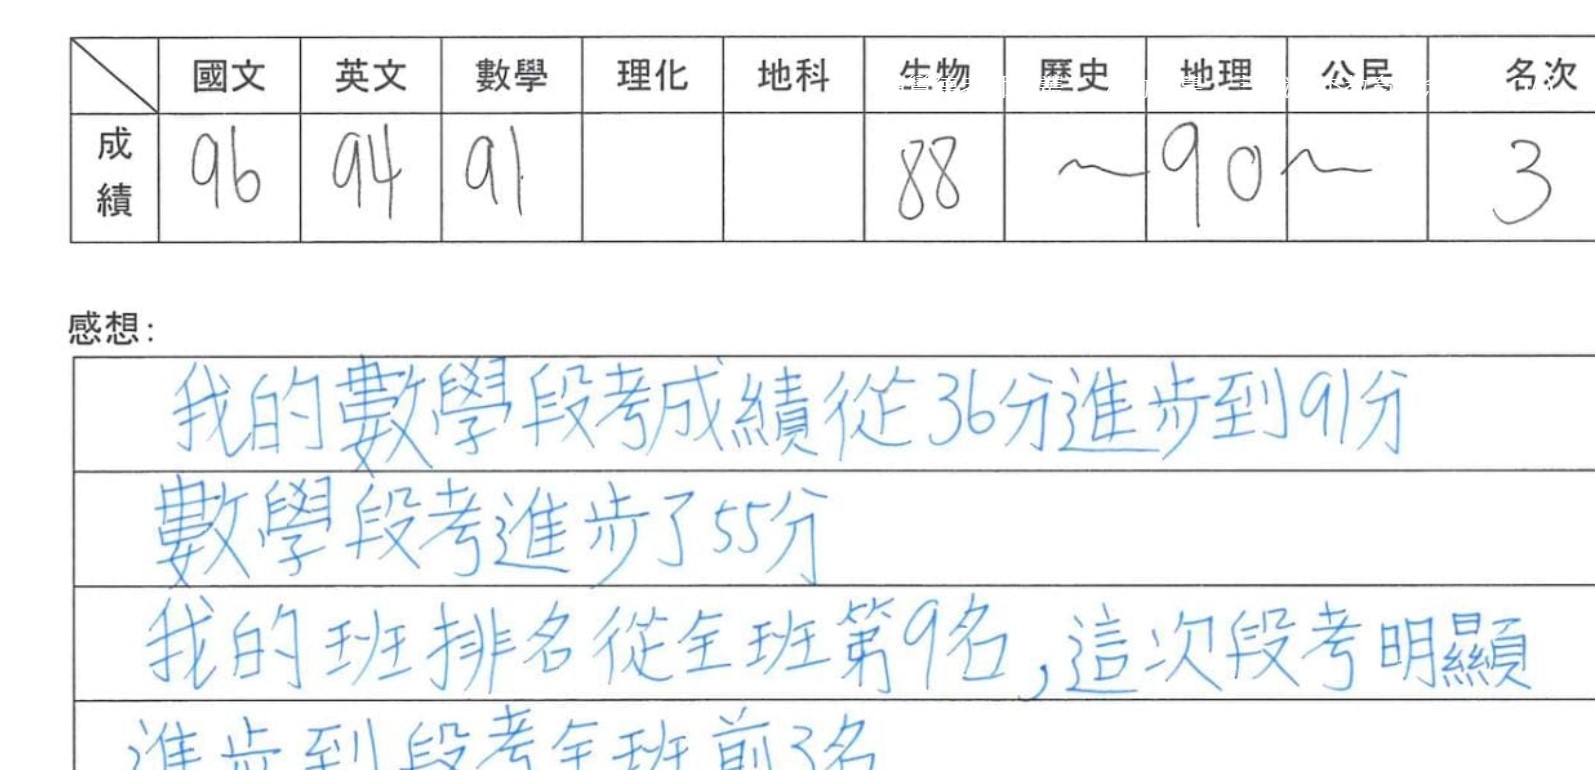 國文 英文 數學 理化 地科 生物 歷史 地理 公民 名次
成績 96 94 91 88 ~90~ 3
感想：
我的數學段考成績從36分進步到91分
數學段考進步了55分
我的班排名從全班第9名,這次段考明顯
進步到段考全班前3名